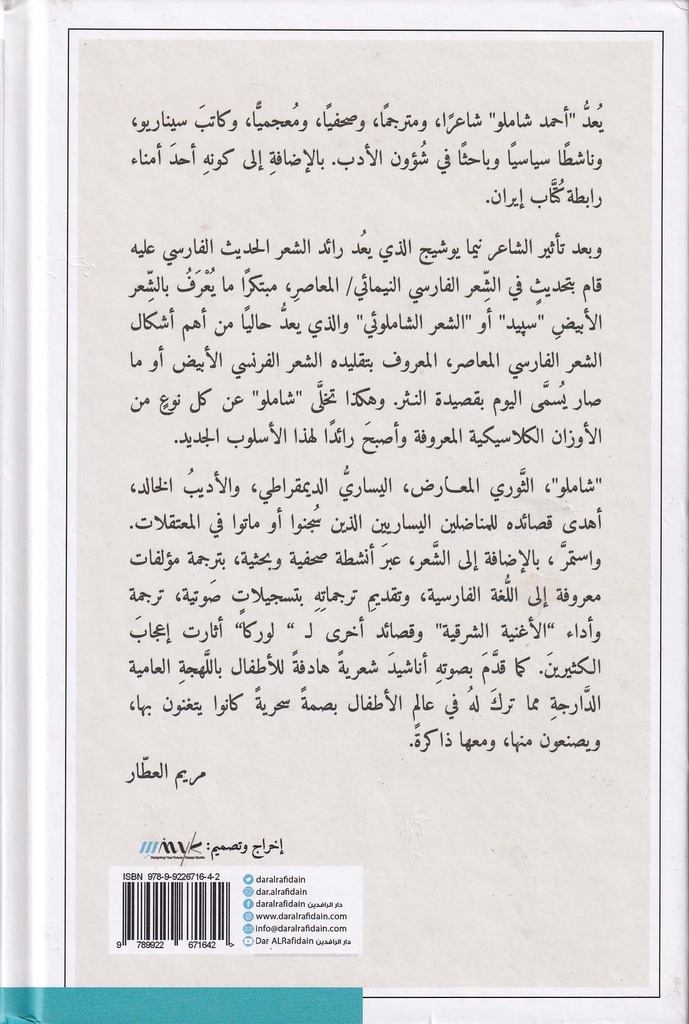 يُعدُّ "أحمد شاملو" شاعرًا، ومترجمًا، وصحفيًا، ومُعجميًّا، وكاتبَ سيناريو،
وناشطًا سياسيًا وباحثًا في شُؤون الأدب. بالإضافةِ إلى كونهِ أحدَ أمناء
رابطة كُتَّاب إيران.
وبعد تأثير الشاعر نيما يوشيج الذي يعُد رائد الشعر الحديث الفارسي عليه
قام بتحديثٍ في الشِّعر الفارسي النيمائي/ المعاصرِ، مبتكرًا ما يُعْرَفُ بالشِّعر
الأبيضِ "سپيد" أو "الشعر الشاملوئي" والذي يعدُّ حاليًا من أهم أشكال
الشعر الفارسي المعاصر، المعروف بتقليده الشعر الفرنسي الأبيض أو ما
صار يُسمَّى اليوم بقصيدة النثر. وهكذا تخلَّى "شاملو" عن كل نوعٍ من
الأوزان الكلاسيكية المعروفة وأصبحَ رائدًا لهذا الأسلوب الجديد.
"شاملو"، الثَّوري المعارض، اليساريُّ الديمقراطي، والأديبُ الخالد،
أهدى قصائده للمناضلين اليساريين الذين سُجنوا أو ماتوا في المعتقلات.
واستمرَّ ، بالإضافة إلى الشَّعر، عبرَ أنشطة صحفية وبحثية، بترجمة مؤلفات
معروفة إلى اللُّغة الفارسية، وتقديمِ ترجماتهِ بتسجيلاتٍ صَوتية، ترجمة
وأداء "الأغنية الشرقية" وقصائد أخرى لـ " لوركا" أثارت إعجابَ
الكثيرينَ. كما قدَّمَ بصوتهِ أناشيدَ شعريةً هادفةً للأطفال باللَّهجةِ العامية
الدَّارجةِ مما تركَ لهُ في عالمِ الأطفال بصمةً سحريةً كانوا يتغنون بها،
ويصنعون منها، ومعها ذاكرةً.
مريم العطّار
إخراج وتصميم:
ISBN 978-9-9226716-4-2
9 789922 671642 >
daralrafidain
dar.alrafidain
daralrafidain دار الرافدين
www.daralrafidain.com
info@daralrafidain.com
Dar ALRafidain دار الرافدين